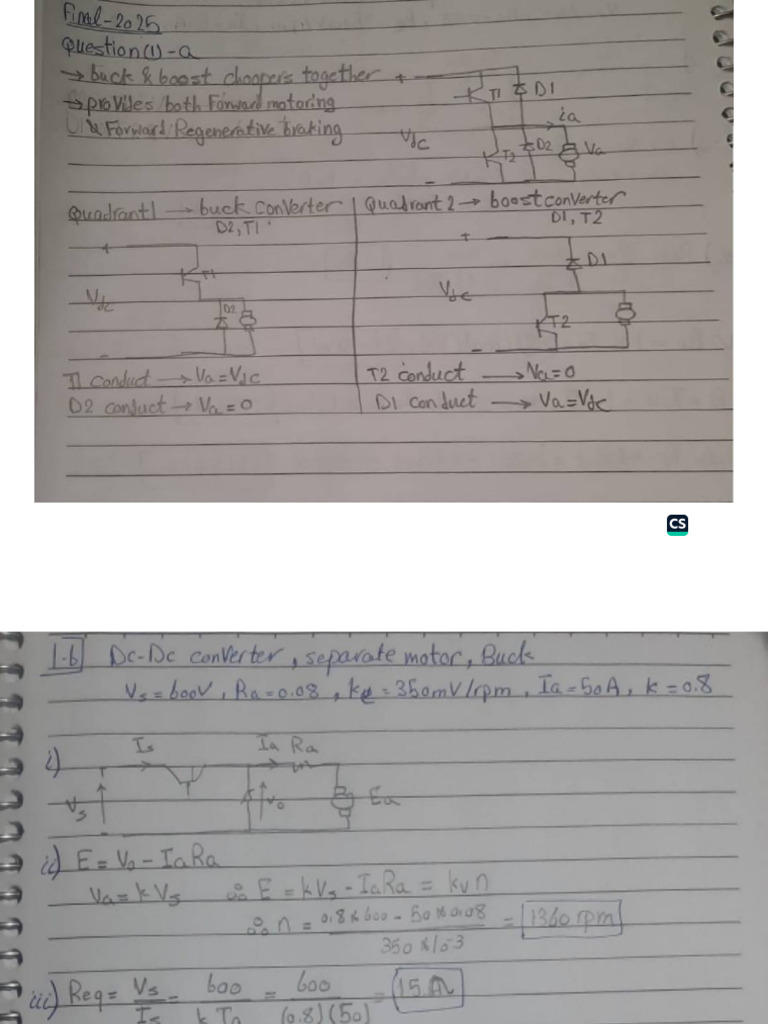 Final-2025
Question(1)-a
→ buck & boost choppers together
→ provides both Forward motoring
& Forward Regenerative braking
+
T1 D1
ia
Vdc
T2 D2 Va
-
Quadrant1 → buck converter
D2, T1
+
T1
Vdc
D2
-
T1 conduct → Va=Vdc
D2 conduct → Va=0
Quadrant 2 → boost converter
D1, T2
+
D1
Vdc
T2
-
T2 conduct → Va=0
D1 conduct → Va=Vdc
CS
1-b Dc-Dc converter, separate motor, Buck
Vs=600V, Ra=0.08, ke=350mV/rpm, Ia=50A, k=0.8
i)
Is Ia Ra
Vs Vo Ea
ii) E = Vo - IaRa
Va = kVs ∴ E = kVs - IaRa = kv n
∴ n = 0.8*600 - 50*0.08 / 350*10^-3 = 1360 rpm
iii) Req = Vs/Is = 600/k Ia = 600/(0.8)(50) = 15 Ω